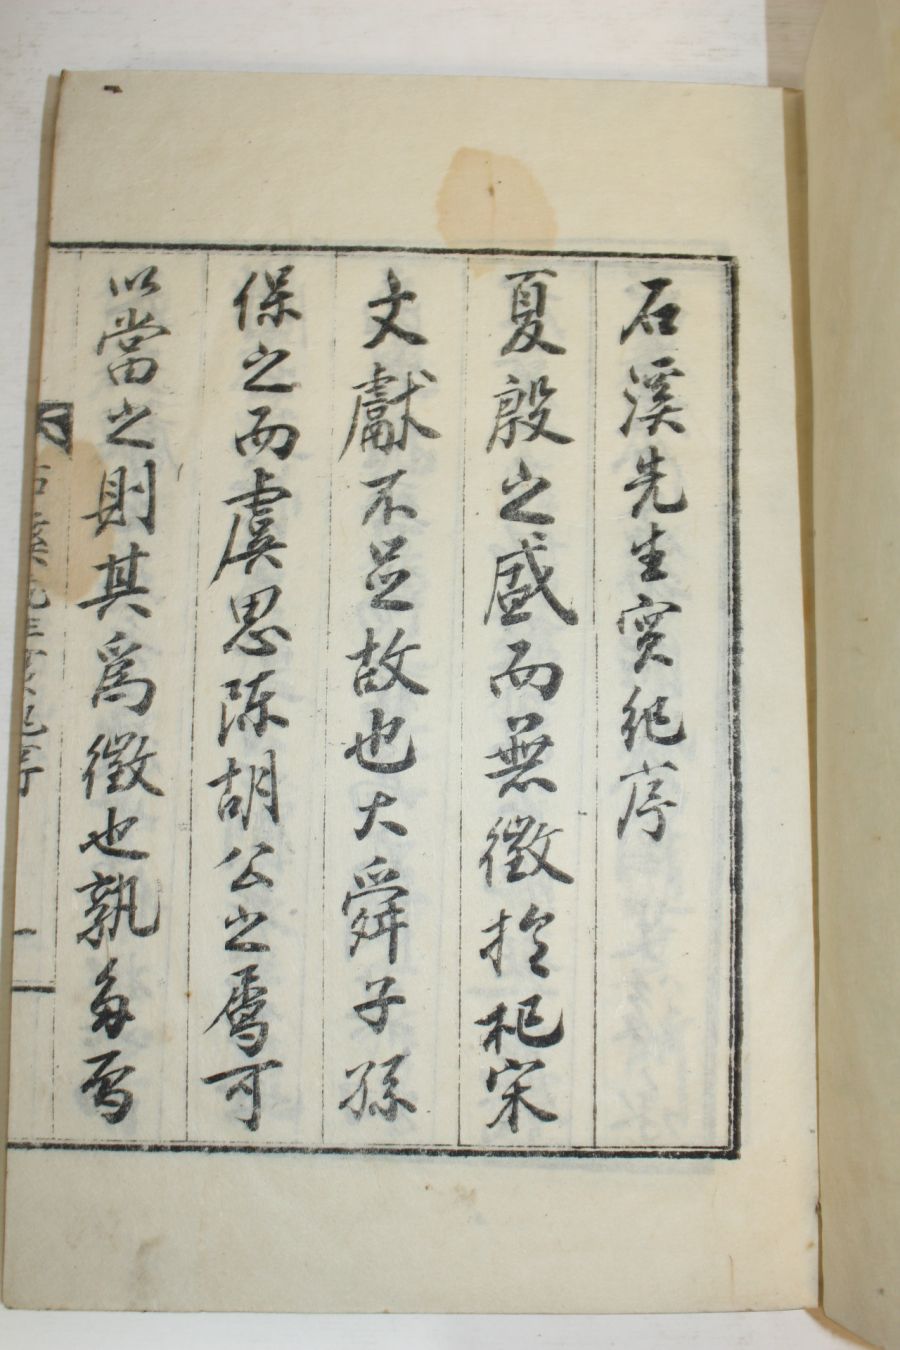 石溪先生實紀序
夏殷之盛而無徵於杞宋
文獻不足故也大舜子孫
保之而虞思陳胡公之屬可
以當之則其爲徵也孰多焉
石溪先生實紀序
一